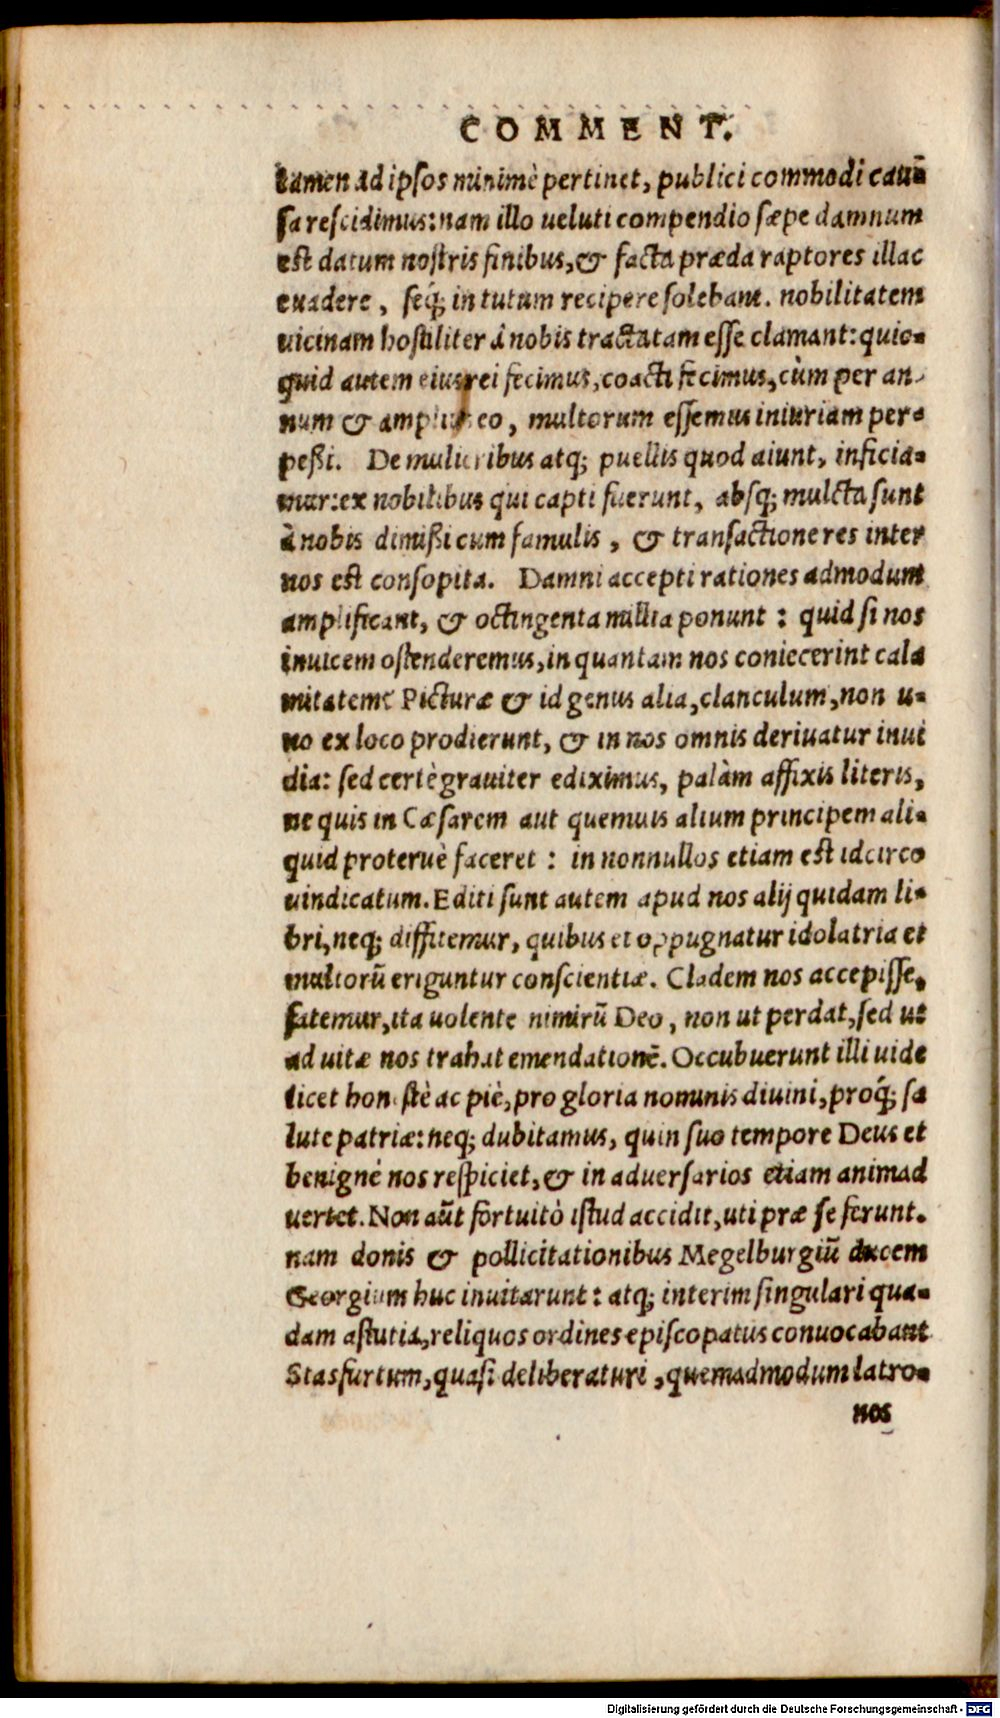 COMMENT.
tamen ad ipsos minimè pertinet, publici commodi cau-
sa rescidimus: nam illo ueluti compendio sæpe damnum
est datum nostris finibus, & facta præda raptores illac
euadere, seq́; in tutum recipere solebant. nobilitatem
uicinam hostiliter à nobis tractatam esse clamant: quic-
quid autem eius rei fecimus, coacti fecimus, cùm per an-
num & amplius eo, multorum essemus iniuriam per-
peßi. De mulieribus atq; puellis quod aiunt, inficia-
mur: ex nobilibus qui capti fuerunt, absq; mulcta sunt
à nobis dimißi cum famulis, & transactione res inter
nos est consopita. Damni accepti rationes admodum
amplificant, & octingenta millia ponunt: quid si nos
inuicem ostenderemus, in quantam nos coniecerint cala
mitatem? Picturæ & id genus alia, clanculum, non u-
no ex loco prodierunt, & in nos omnis deriuatur inui
dia: sed certè grauiter ediximus, palàm affixis literis,
ne quis in Cæsarem aut quemuis alium principem ali-
quid proteruè faceret: in nonnullos etiam est idcirco
uindicatum. Editi sunt autem apud nos alij quidam li-
bri, neq; diffitemur, quibus et oppugnatur idolatria et
multorũ eriguntur conscientiæ. Cladem nos accepisse,
fatemur, ita uolente nimirũ Deo, non ut perdat, sed ut
ad uitæ nos trahat emendationẽ. Occubuerunt illi uide
licet honestè ac piè, pro gloria nominis diuini, proq́; sa
lute patriæ: neq; dubitamus, quin suo tempore Deus et
benignè nos respiciet, & in aduersarios etiam animad
uertet. Non aũt fortuitò istud accidit, uti præ se ferunt.
nam donis & pollicitationibus Megelburgiũ ducem
Georgium huc inuitarunt: atq; interim singulari qua-
dam astutia, reliquos ordines episcopatus conuocabant
Stasfurtum, quasi deliberaturi, quemadmodum latro-
nos
Digitalisierung gefördert durch die Deutsche Forschungsgemeinschaft - DFG